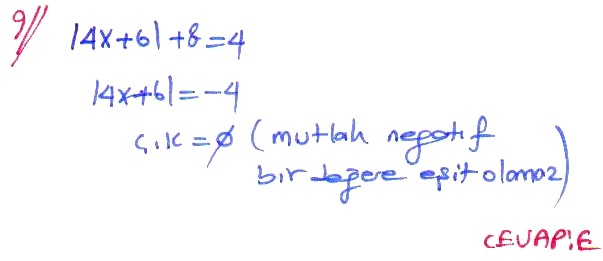 9//
|4x+6|+8=4
|4x+6|=-4
Ç.K=Ø (mutlak negatif
bir değere eşit olamaz)
CEVAP:E